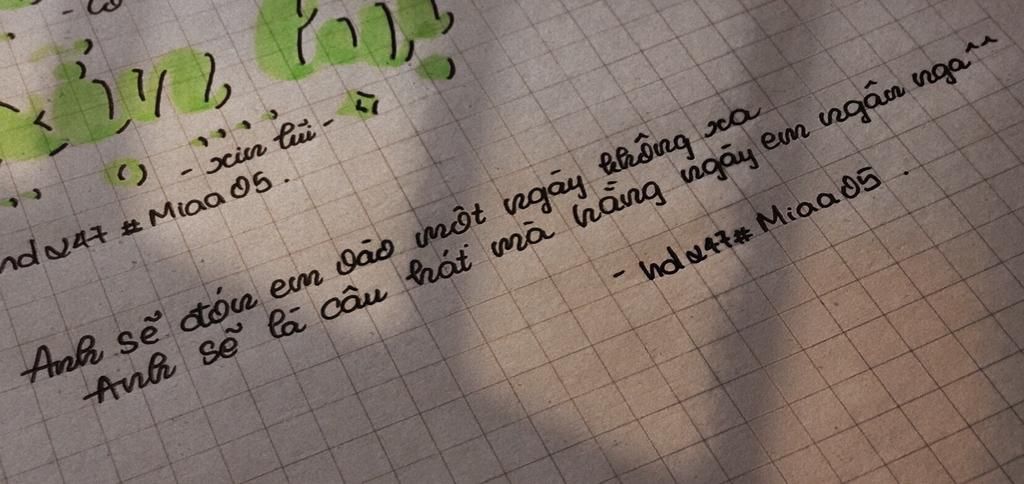 - xin lũi -
ndv47 # Miaa05.
Anh sẽ đón em vào một ngày không xa
Anh sẽ là câu hát mà hằng ngày em ngân nga^^
- ndv47# Miaa05.